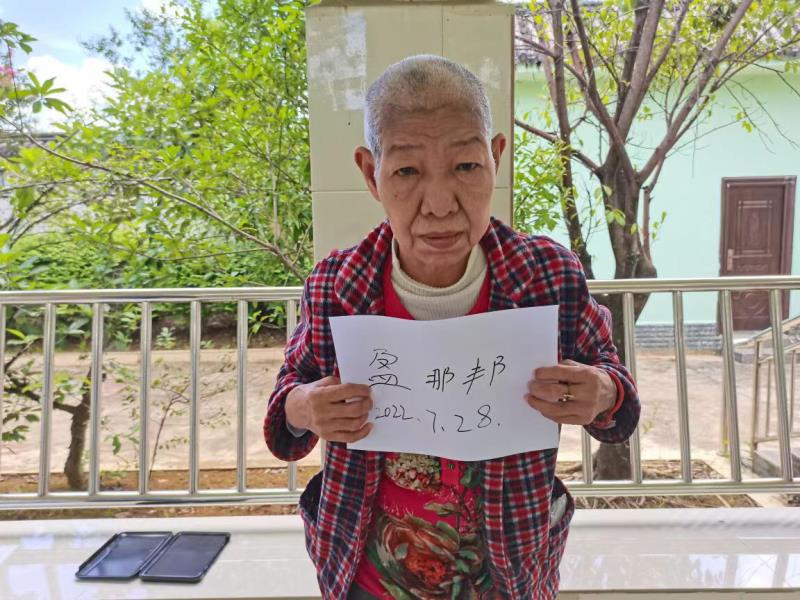 盈那邦
2022.7.28.